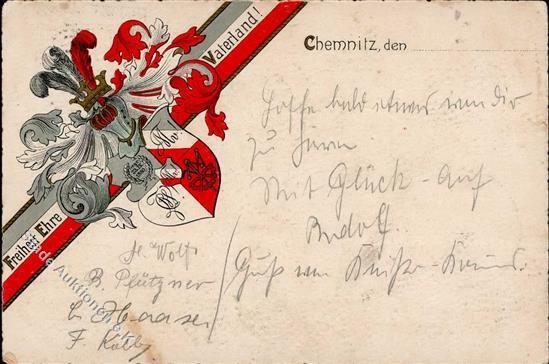 Freiheit Ehre Vaterland!
Chemnitz, den
Hoffe bald etwas von dir
zu hören
Mit Glück-Auf
Rudolf.
H. Wolf
R. Pfützner
E. Haase
F. Kolb
Gruß von